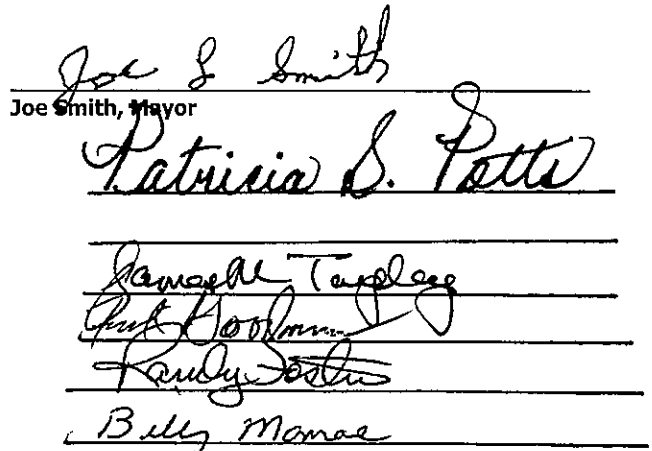 Joe S Smith
Joe Smith, Mayor
Patricia S. Potts
Tarpley
Randy Foster
Billy Monroe